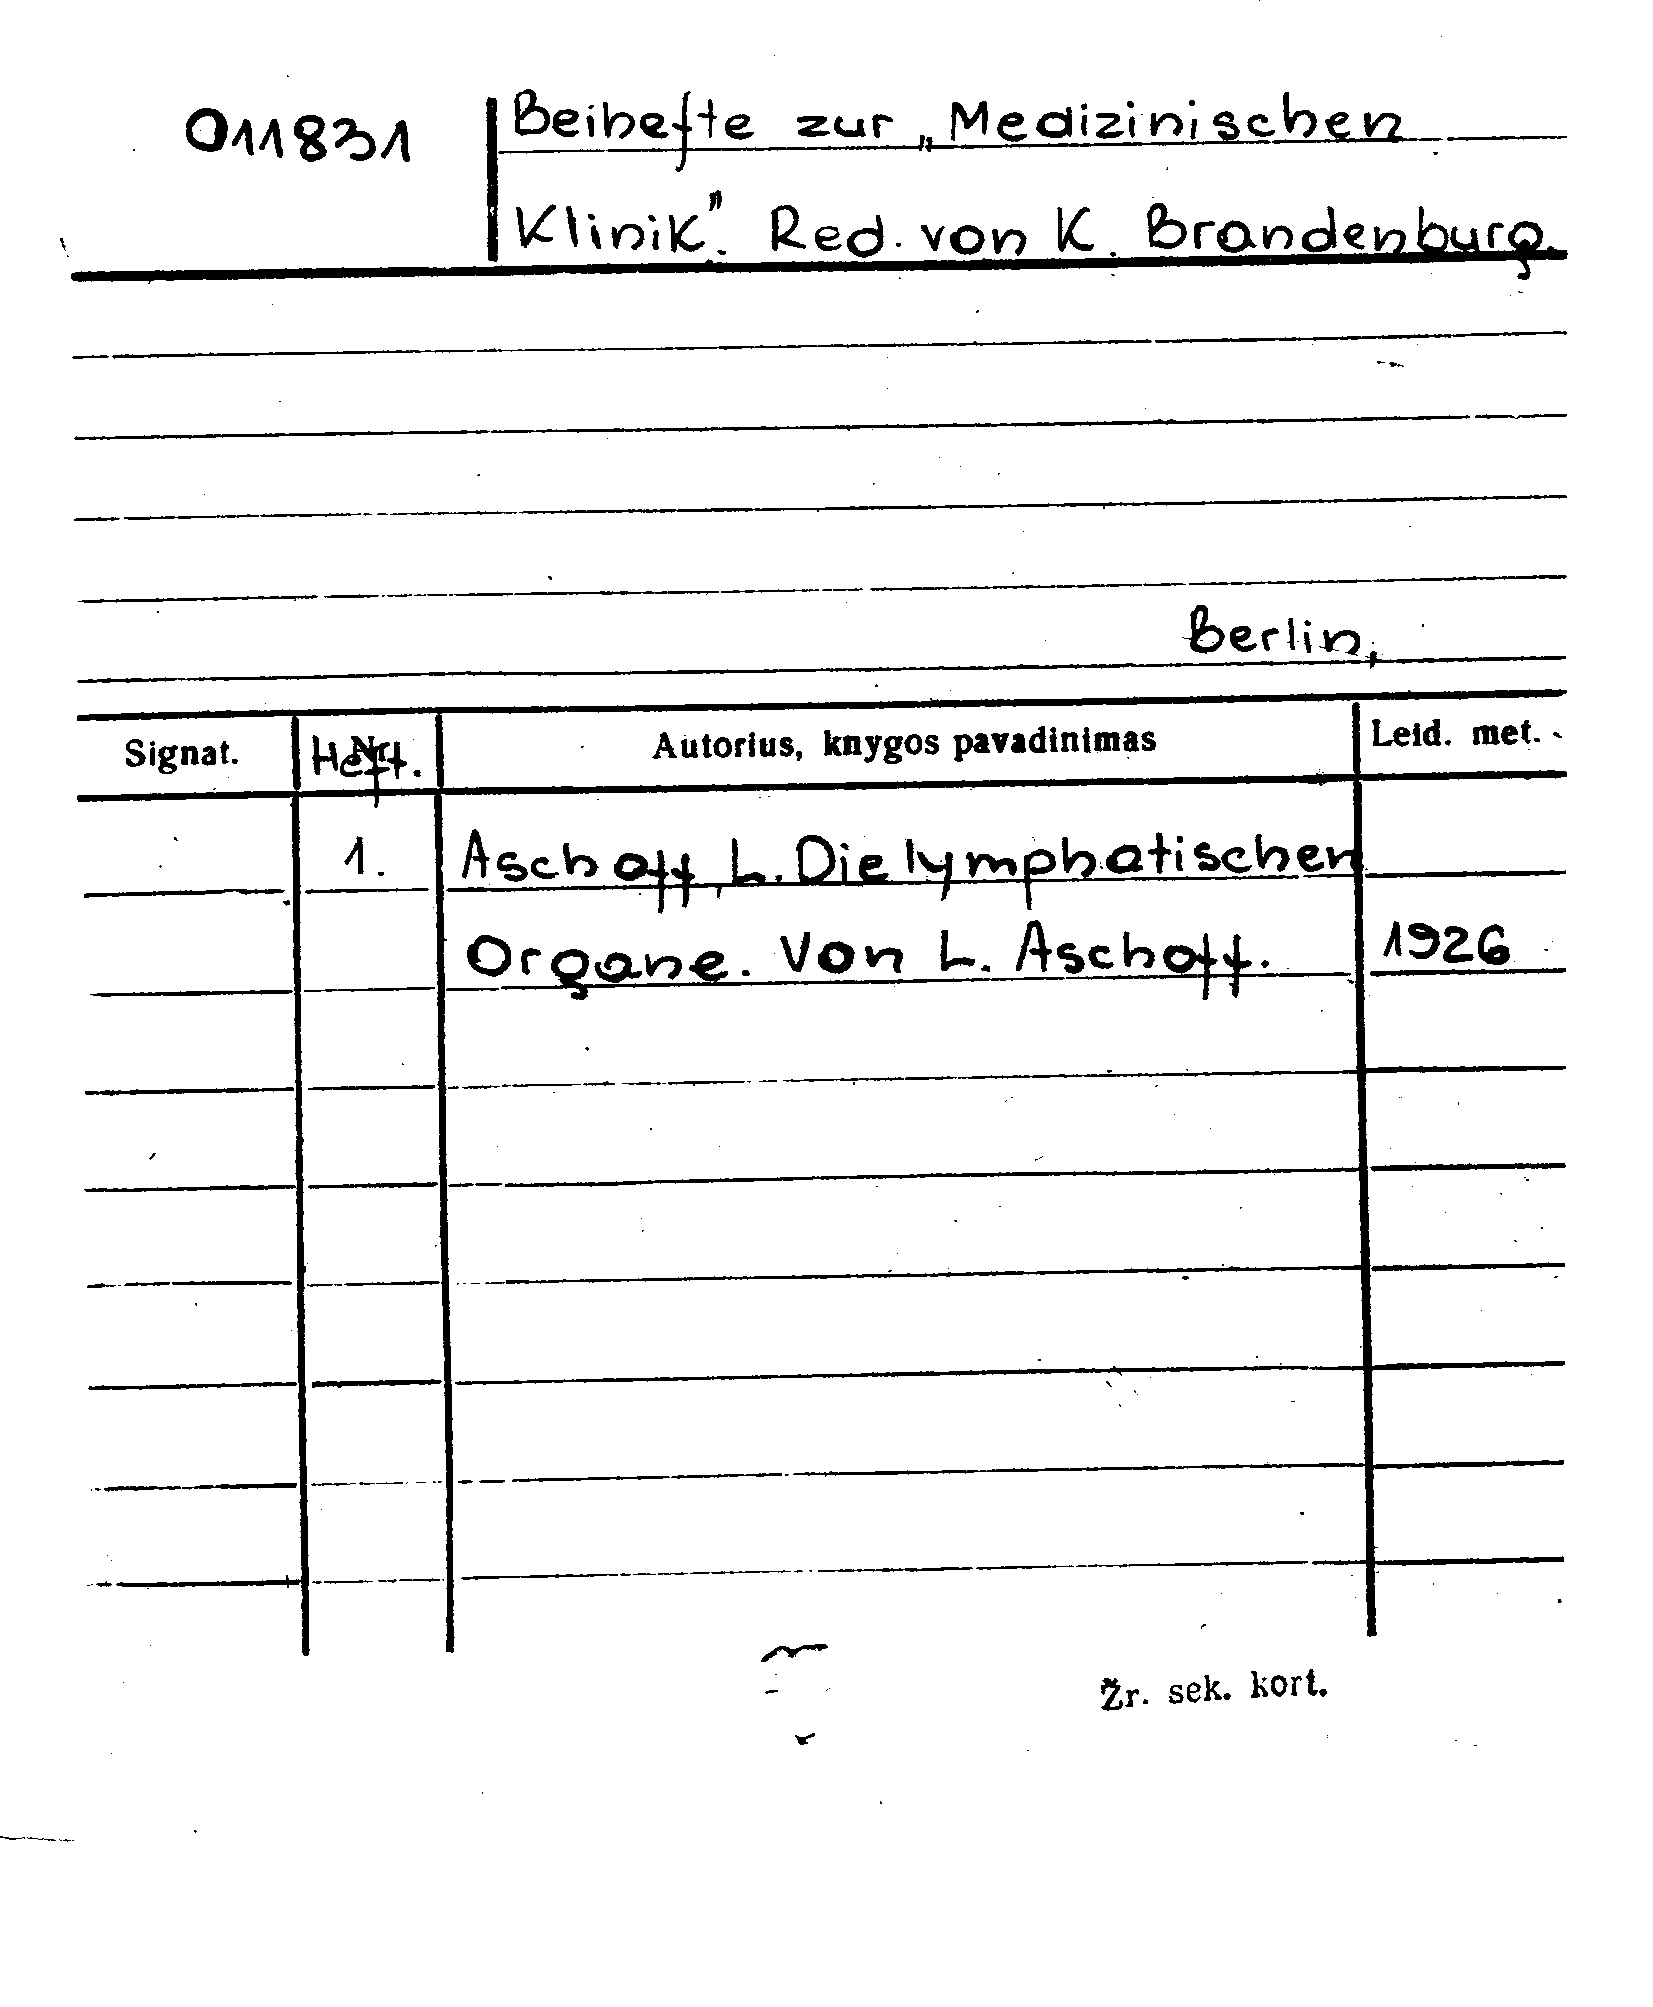 011831
Beihefte zur „Medizinischen
Klinik". Red. von K. Brandenburg.
Berlin,
Signat. Heft. Autorius, knygos pavadinimas Leid. met.
1. Aschoff, L. Die lymphatischen
Organe. Von L. Aschoff. 1926
Žr. sek. kort.